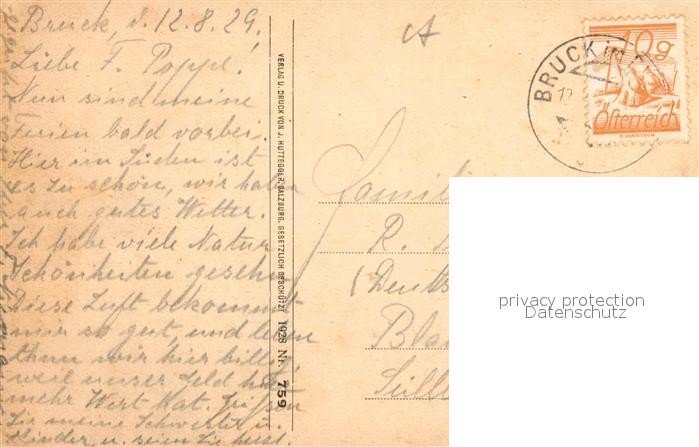 Bruck, d. 12.8.29.
Liebe F. Poppe!
Nun sind meine
Ferien bald vorbei.
Hier im Süden ist
es zu schön, wir haben
auch gutes Wetter.
Ich habe viele Natur
Schönheiten gesehn
Diese Luft bekommt
mir so gut, und leben
thun wir hier billig,
weil unser Geld hat
mehr Wert hat. Grüßen
Sie meine Schwester u.
Kinder u. seien Sie herzl.
VERLAG U. DRUCK VON J. HUTTEGGER, SALZBURG. GESETZLICH GESCHÜTZT 1928 Nr. 759
BRUCK im
10g
Österreich
Famili
R.
(Deuts
Bla
privacy protection
Datenschutz